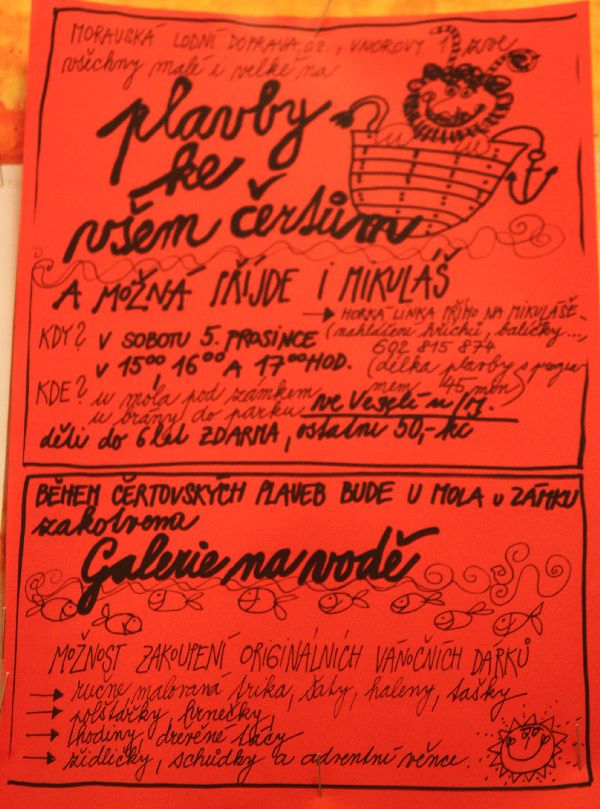 MORAVSKÁ LODNÍ DOPRAVA, o.s., VNOROVY 1 zve
všechny malé i velké na
plavby
ke
všem čertům
A MOŽNÁ PŘIJDE I MIKULÁŠ
→ HORKÁ LINKA PŘÍMO NA MIKULÁŠE-
KDY? V SOBOTU 5. PROSINCE (nahlášení hříchů, balíčky...,
602 815 874
V 15⁰⁰, 16⁰⁰ A 17⁰⁰ HOD. (délka plavby s progra
mem 45 min)
KDE? u mola pod zámkem
u brány do parku ve Veselí n/M.
děti do 6 let ZDARMA, ostatní 50,-kč
BĚHEM ČERTOVSKÝCH PLAVEB BUDE U MOLA u ZÁMKU
zakotvena
Galerie na vodě
MOŽNOST ZAKOUPENÍ ORIGINÁLNÍCH VÁNOČNÍCH DÁRKŮ
→ ručně malovaná trika, šaty, haleny, tašky
→ polštářky, hrnečky,
→ hodiny, dřevěné tácy
→ židličky, schůdky a adventní věnce.